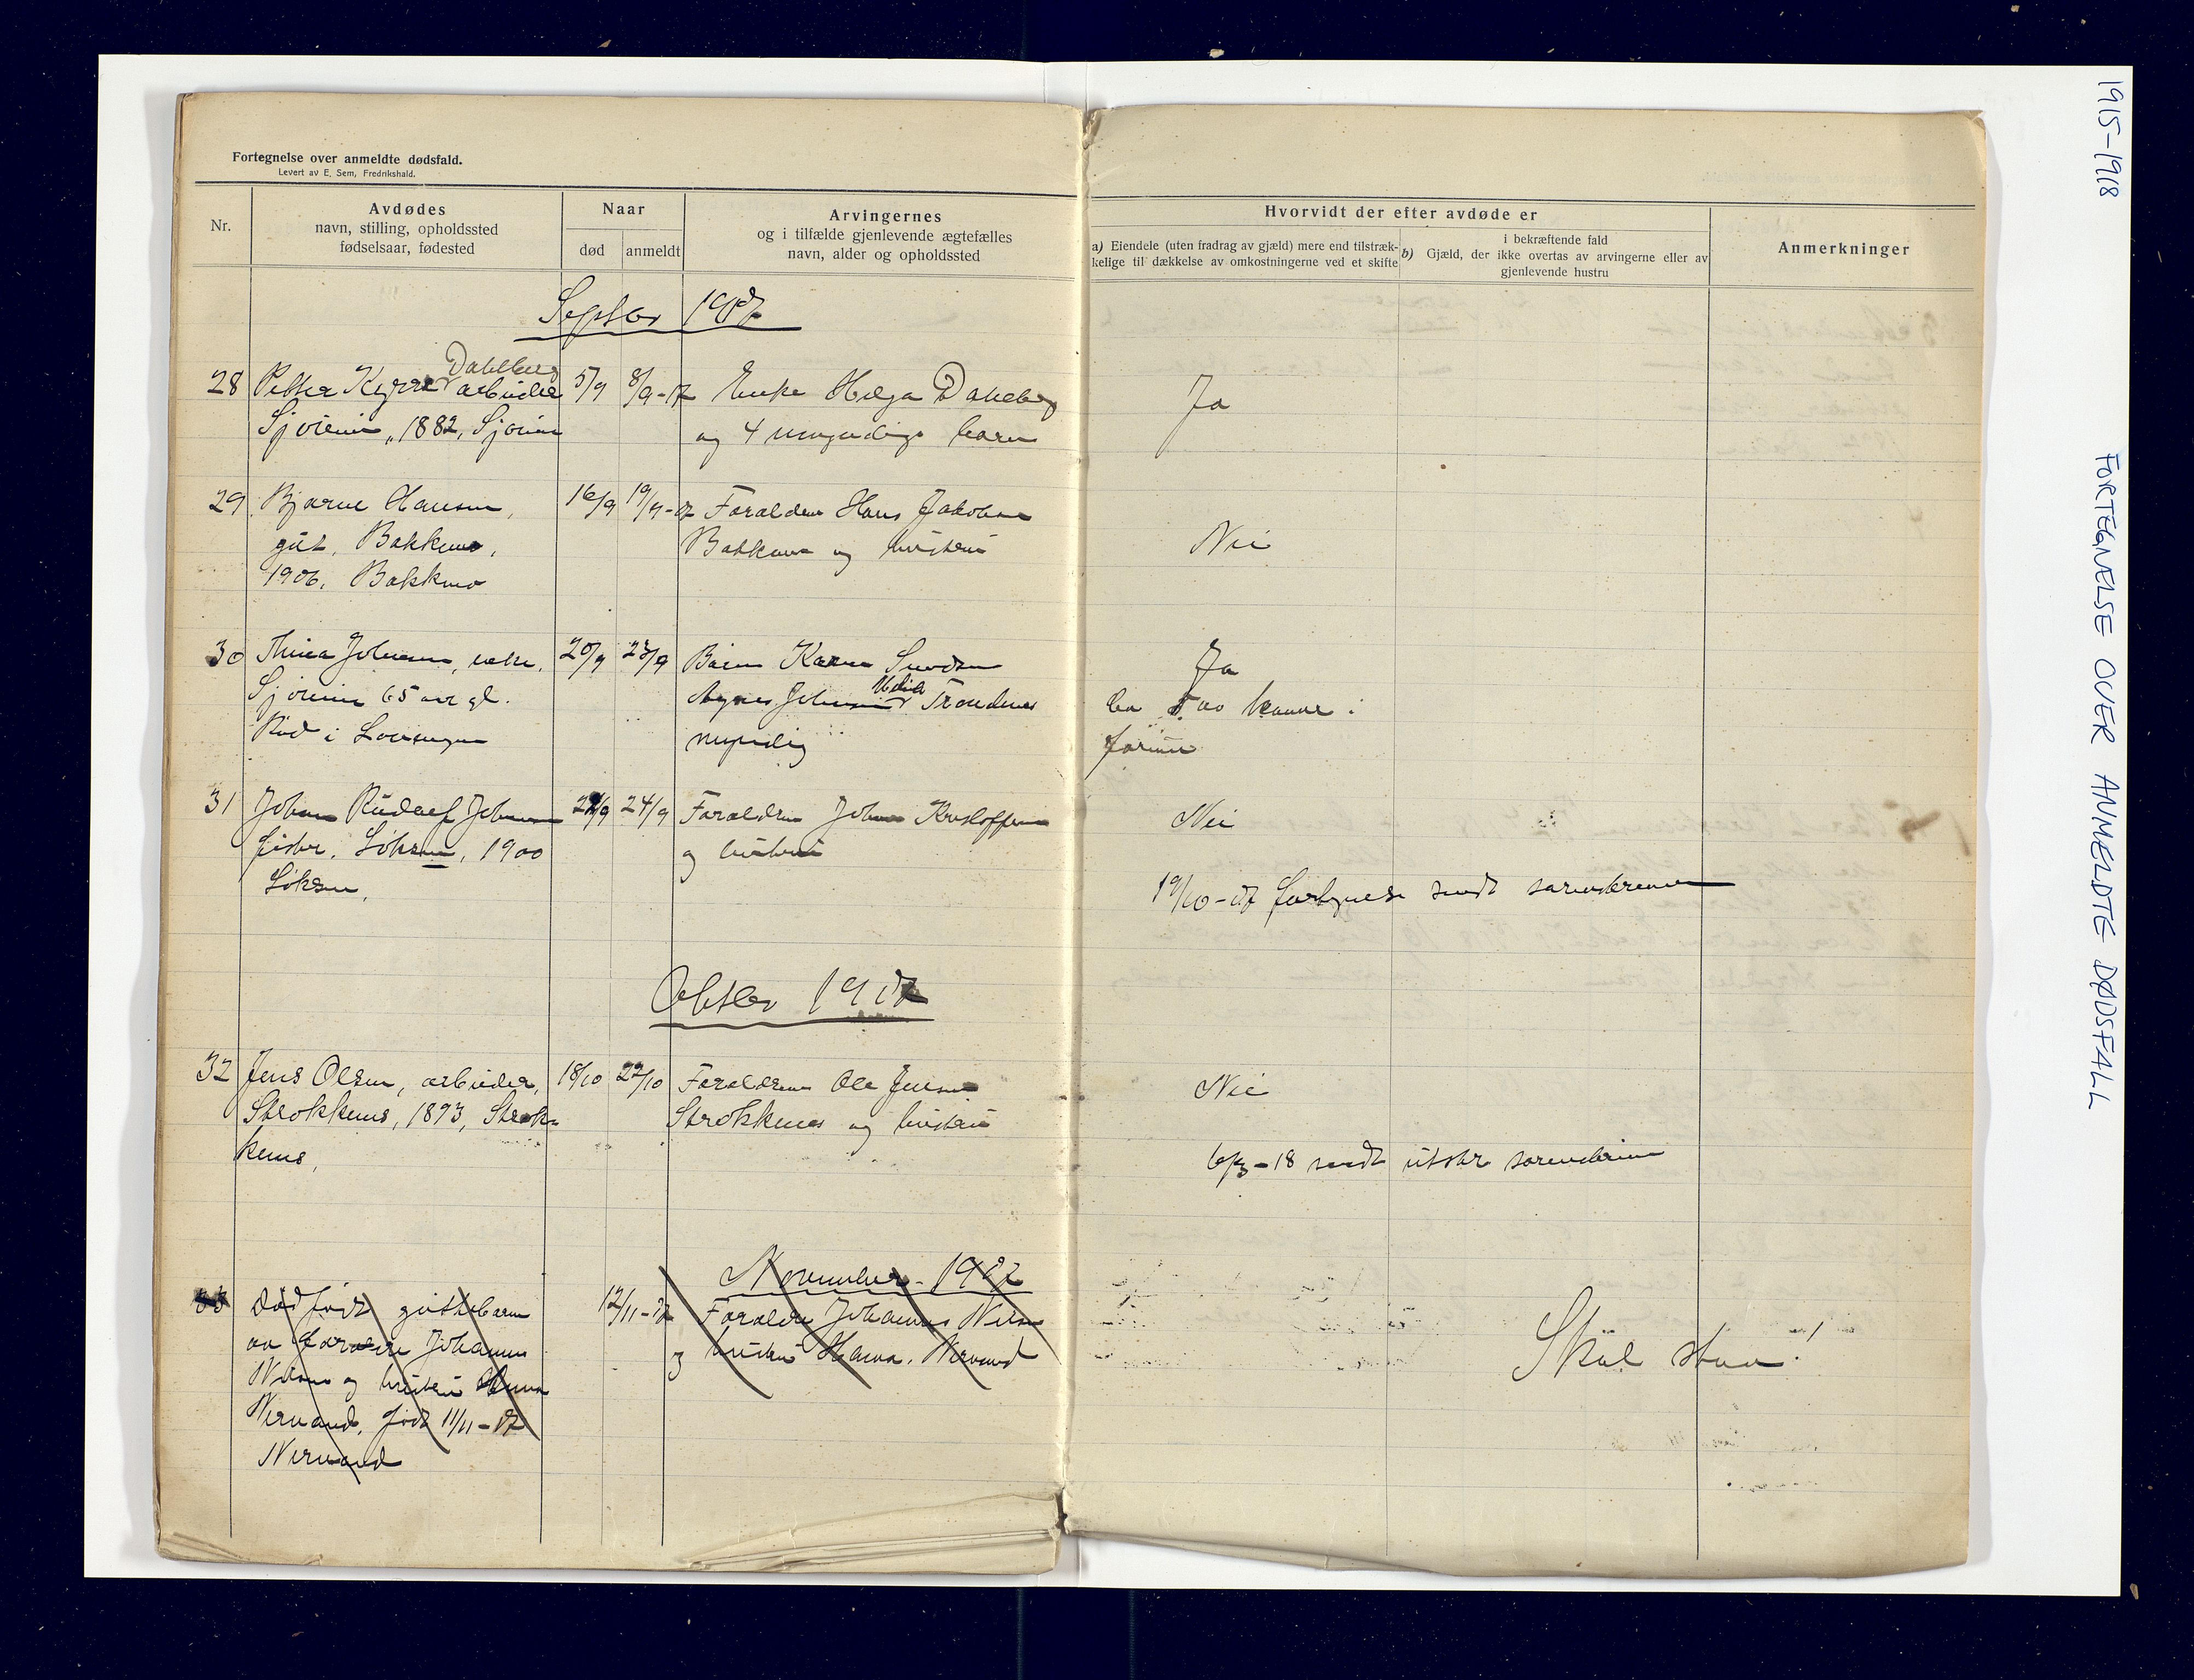 Fortegnelse over anmeldte dødsfald.
Levert av E. Sem, Fredrikshald.
Nr.
Avdødes
navn, stilling, opholdssted
fødselsaar, fødested
Naar
død
anmeldt
Arvingernes
og i tilfælde gjenlevende ægtefælles
navn, alder og opholdssted
Hvorvidt der efter avdøde er
a) Eiendele (uten fradrag av gjæld) mere end tilstræk-
kelige til dækkelse av omkostningerne ved et skifte
i bekræftende fald
b) Gjæld, der ikke overtas av arvingerne eller av
gjenlevende hustru
Anmerkninger
Septbr 1917
Dahlberg
28 Petter arbeider 5/9 8/9-17 Enke Helga Dahlberg Ja
1882, og 4 umyndige barn
29 Bjarne Hansen, 16/9 19/9-17 Forældre Hans Jakobsen
gut, Bakkemo, Bakkemo og hustru Nei
1906. Bakkemo
30 Johnsen, enke, 20/9 23/9 Barn Karen Ja
65 aar gl. Agnes Johnsen Trondenes ca 500 kroner i
i
31 Johan Rudolf Johnsen 24/9 Forældre Johan Kristoffersen Nei
fisker. 1900 og hustru
19/10-17 sendt sorenskriveren
Oktbr 1917
32 Jens Olsen, arbeider, 18/10 22/10 Forældrene Ole Jensen Nei
Strokkenes, 1893, Strok-
kenes,
Strokkenes og hustru
6/3-18 sendt utskr sorenskriveren
November - 1917
33 Dødfødt guttebarn 12/11-17 Forældre Johannes Nilsen
av forældre Johannes og hustru Hanna. Nervand
Nilsen og hustru Hanna
Nervand, født 11/11-17
Nervand
Skal staa!
1915-1918 FORTEGNELSE OVER ANMELDTE DØDSFALL